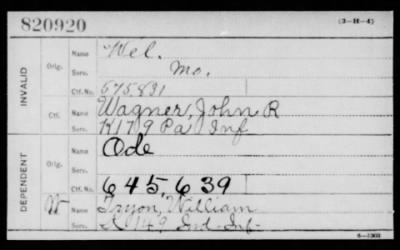 820920
(3-H-4)
INVALID
Orig.
Name Wel.
Serv. Mo.
Ctf. No. 675,831
Ctf.
Name Wagner, John R
Serv. K 179 Pa Inf
DEPENDENT
Orig.
Name Ode
Serv.
Ctf. No. 645,639
W
Name Tryon, William
Serv. K 149 Ind. Inf.